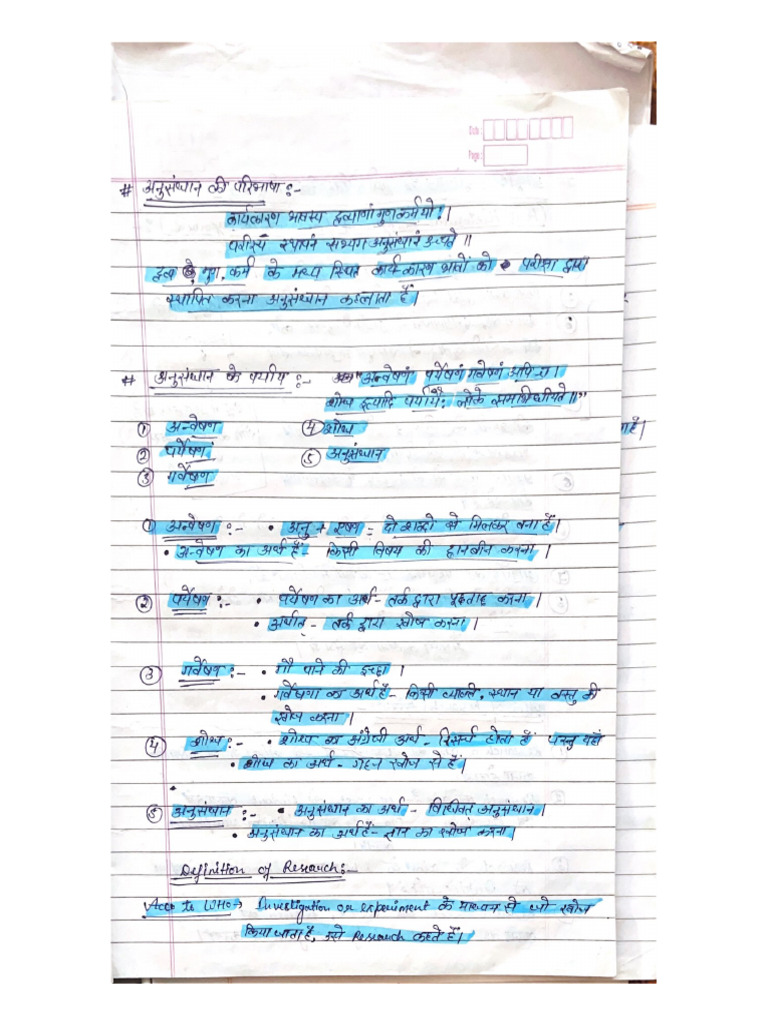 Date :
Page :
# अनुसंधान की परिभाषा :-
कार्यकारण भावस्य द्रव्याणां गुणकर्मयोः।
परीक्ष्य स्थापनं सम्यग अनुसंधानं उच्यते॥
द्रव्य गुण, कर्म के मध्य स्थित कार्य कारण भावों को परीक्षा द्वारा
स्थापित करना अनुसंधान कहलाता है।
# अनुसंधान के पर्याय :- "अन्वेषणं पर्येषणं गवेषणं अपि च।
शोध इत्यादि पर्यायैः लोके समभिधीयते॥"
① अन्वेषण ④ शोध
② पर्येषण ⑤ अनुसंधान
③ गवेषण
① अन्वेषण :- • अनु + एषण = दो शब्दो से मिलकर बना है।
• अन्वेषण का अर्थ है - किसी विषय की छानबीन करना।
② पर्येषण :- • पर्येषण का अर्थ - तर्क द्वारा पूछताछ करना।
• अर्थात् - तर्क द्वारा खोज करना।
③ गर्वेषण :- • गौ पाने की इच्छा।
• गर्वेषणा का अर्थ है - किसी व्यक्ति, स्थान या वस्तु की
खोज करना।
④ शोध :- • शोध का अंग्रेजी अर्थ - रिसर्च होता है परन्तु यहाँ
• शोध का अर्थ - गहन खोज से है।
⑤ अनुसंधान :- • अनुसंधान का अर्थ - विधिवत अनुसंधान।
• अनुसंधान का अर्थ है - ज्ञान का खोज करना।
Definition of Research :-
Acc to WHO → Investigation or experiment के माध्यम से जो खोज
किया जाता है, उसे Research कहते हैं।